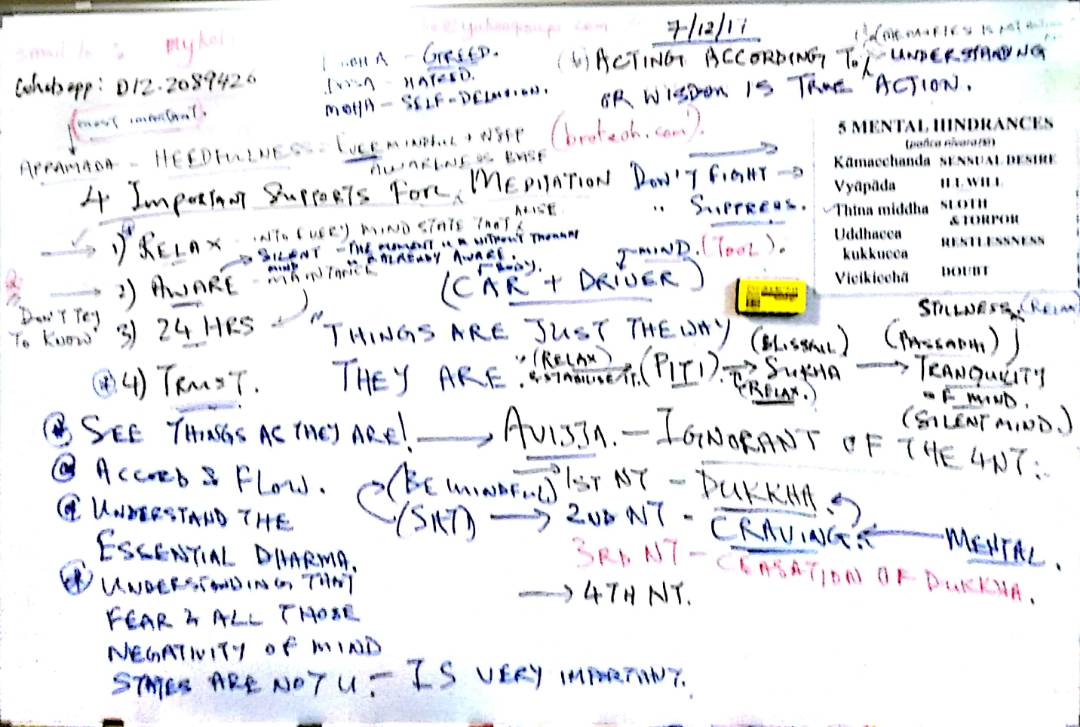 7/12/17
Whatsapp: 012.2089426
GREED.
HATRED.
MOHA - SELF-DELUSION.
(b) ACTING ACCORDING TO UNDERSTANDING
OR WISDOM IS TRUE ACTION.
(most important).
APPAMADA - HEEDFULNESS - EVER MINDFUL +
AWARENESS BASE
(broteoh.com).
4 IMPORTANT SUPPORTS FOR MEDITATION
DON'T FIGHT
" SUPPRESS.
5 MENTAL HINDRANCES
Kāmacchanda SENSUAL DESIRE
Vyāpāda ILL WILL
Thina middha SLOTH & TORPOR
Uddhacca kukkucca RESTLESSNESS
Vicikicchā DOUBT
1) RELAX - INTO EVERY MIND STATE THAT ARISE
SILENT MIND - THE MOMENT U R WITHOUT THOUGHT
U R ALREADY AWARE.
2) AWARE -
BODY. MIND. (TOOL).
(CAR + DRIVER)
DON'T TRY
TO KNOW
3) 24 HRS
"THINGS ARE JUST THE WAY
THEY ARE."
4) TRUST.
(RELAX) & STABILISE IT. (PITI). → (RELAX.) SUKHA (BLISSFUL) → TRANQUILITY OF MIND. (SILENT MIND.)
(PASSADHI)
STILLNESS
SEE THINGS AS THEY ARE! → AVIJJA. - IGNORANT OF THE 4NT:
ACCORD & FLOW.
(BE MINDFUL) 1ST NT - DUKKHA.
(SATI) → 2ND NT - CRAVING ← MENTAL.
3RD NT - CEASATION OF DUKKHA.
→ 4TH NT.
UNDERSTAND THE
ESSENTIAL DHARMA.
UNDERSTANDING THAT
FEAR & ALL THOSE
NEGATIVITY OF MIND
STATES ARE NOT U - IS VERY IMPORTANT.